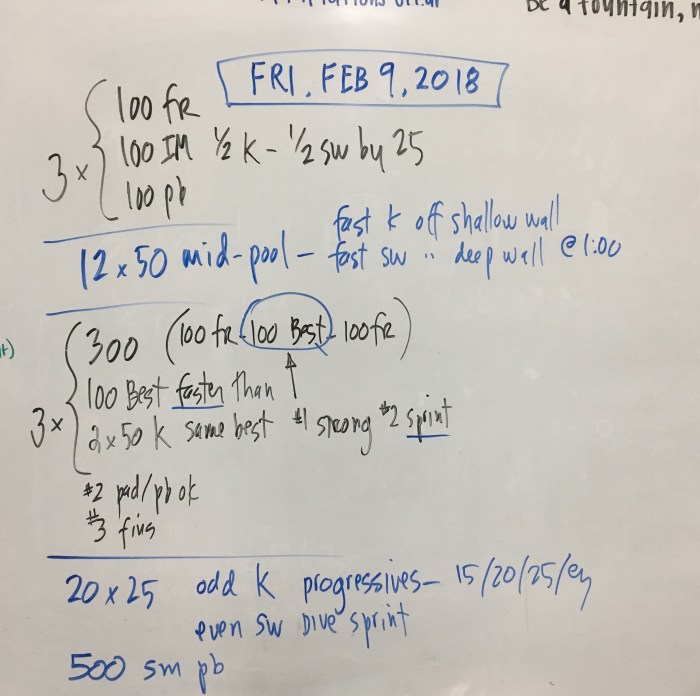 be a fountain,
FRI, FEB 9, 2018
3 x
100 FR
100 IM ½ K - ½ sw by 25
100 pb
12 x 50 mid-pool - fast K off shallow wall
fast sw " deep wall @ 1:00
3 x
300 (100 fr - 100 Best - 100 fr)
100 Best faster than
2 x 50 K same best #1 strong #2 sprint
#2 pad/pb ok
#3 fins
20 x 25 odd K progressives - 15/20/25/ey
even sw DIVE sprint
500 sm pb